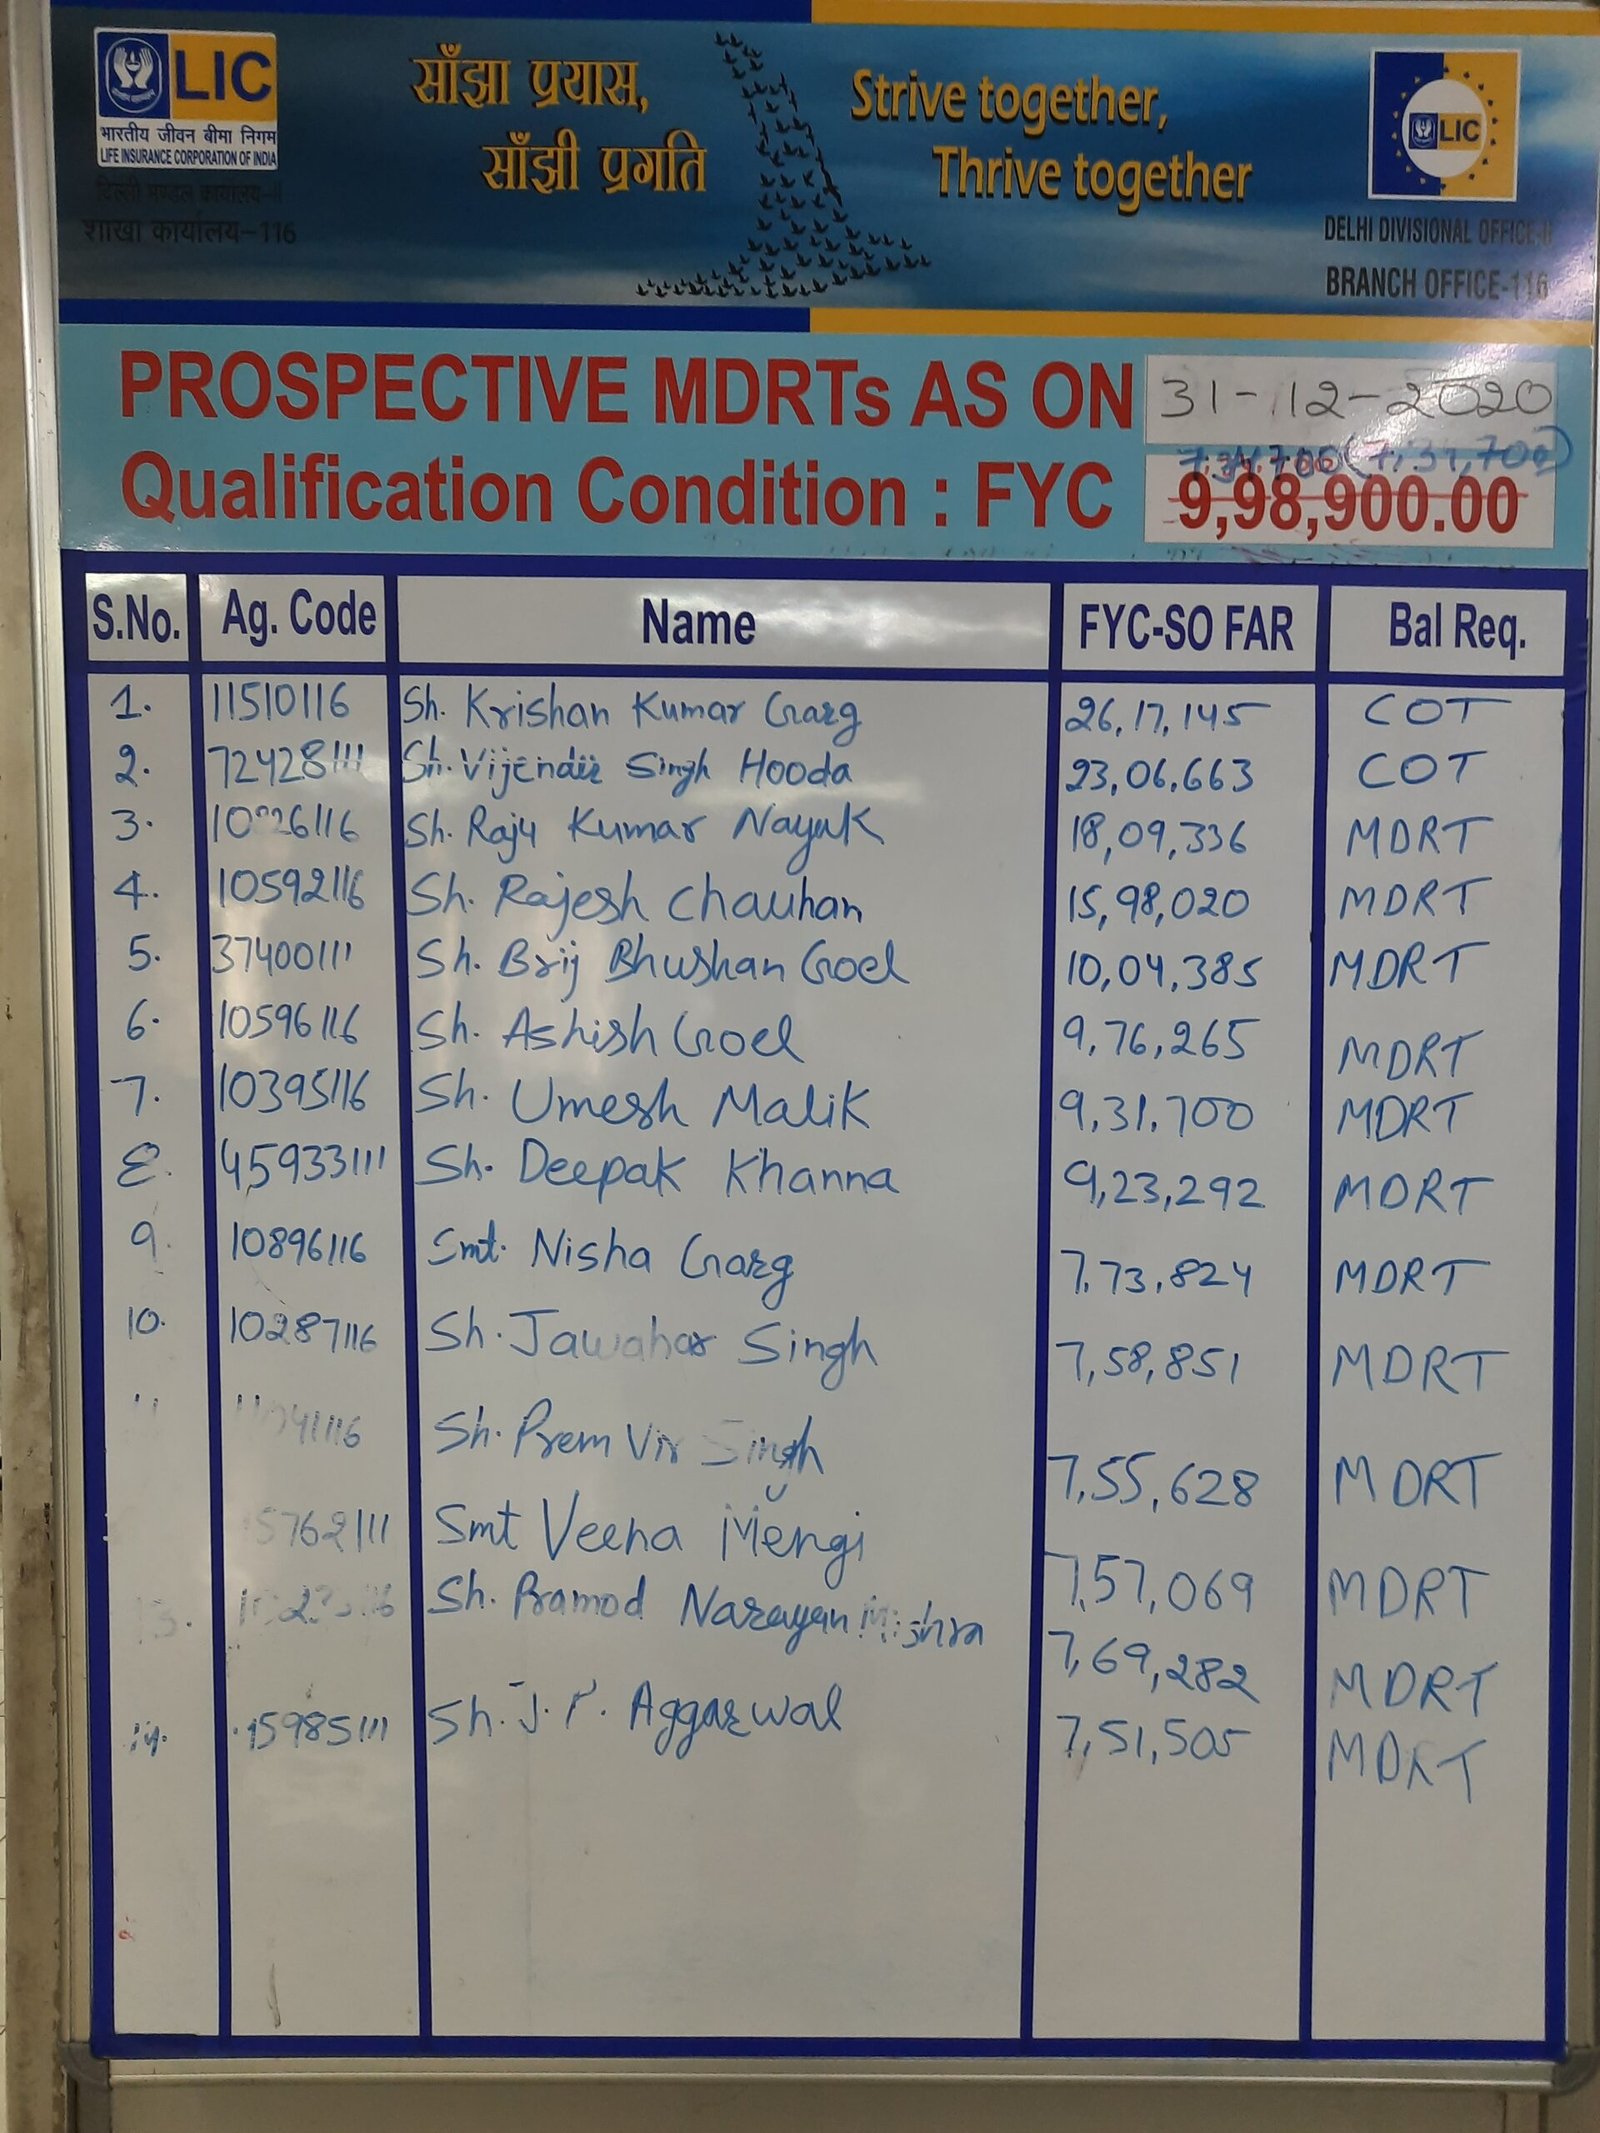 LIC
भारतीय जीवन बीमा निगम
LIFE INSURANCE CORPORATION OF INDIA
दिल्ली मण्डल कार्यालय-II
शाखा कार्यालय-116
साँझा प्रयास,
साँझी प्रगति
Strive together,
Thrive together
LIC
DELHI DIVISIONAL OFFICE-II
BRANCH OFFICE-116
PROSPECTIVE MDRTs AS ON 31-12-2020
(7,31,700)
Qualification Condition : FYC 9,98,900.00
S.No. Ag. Code Name FYC-SO FAR Bal Req.
1. 11510116 Sh. Krishan Kumar Garg 26,17,145 COT
2. 72428111 Sh. Vijender Singh Hooda 23,06,663 COT
3. Sh. Raju Kumar Nayak 18,09,336 MDRT
4. 10592116 Sh. Rajesh Chauhan 15,98,020 MDRT
5. 37400111 Sh. Brij Bhushan Goel 10,04,385 MDRT
6. 10596116 Sh. Ashish Goel 9,76,265 MDRT
7. 10395116 Sh. Umesh Malik 9,31,700 MDRT
8. 45933111 Sh. Deepak Khanna 9,23,292 MDRT
9. 10896116 Smt. Nisha Garg 7,73,824 MDRT
10. 10287116 Sh. Jawahar Singh 7,58,851 MDRT
11 Sh. Prem Vir Singh 7,55,628 MDRT
Smt Veena Mengi 7,57,069 MDRT
13. Sh. Pramod Narayan Mishra 7,69,282 MDRT
14. 15985111 Sh. J. P. Aggarwal 7,51,505 MDRT